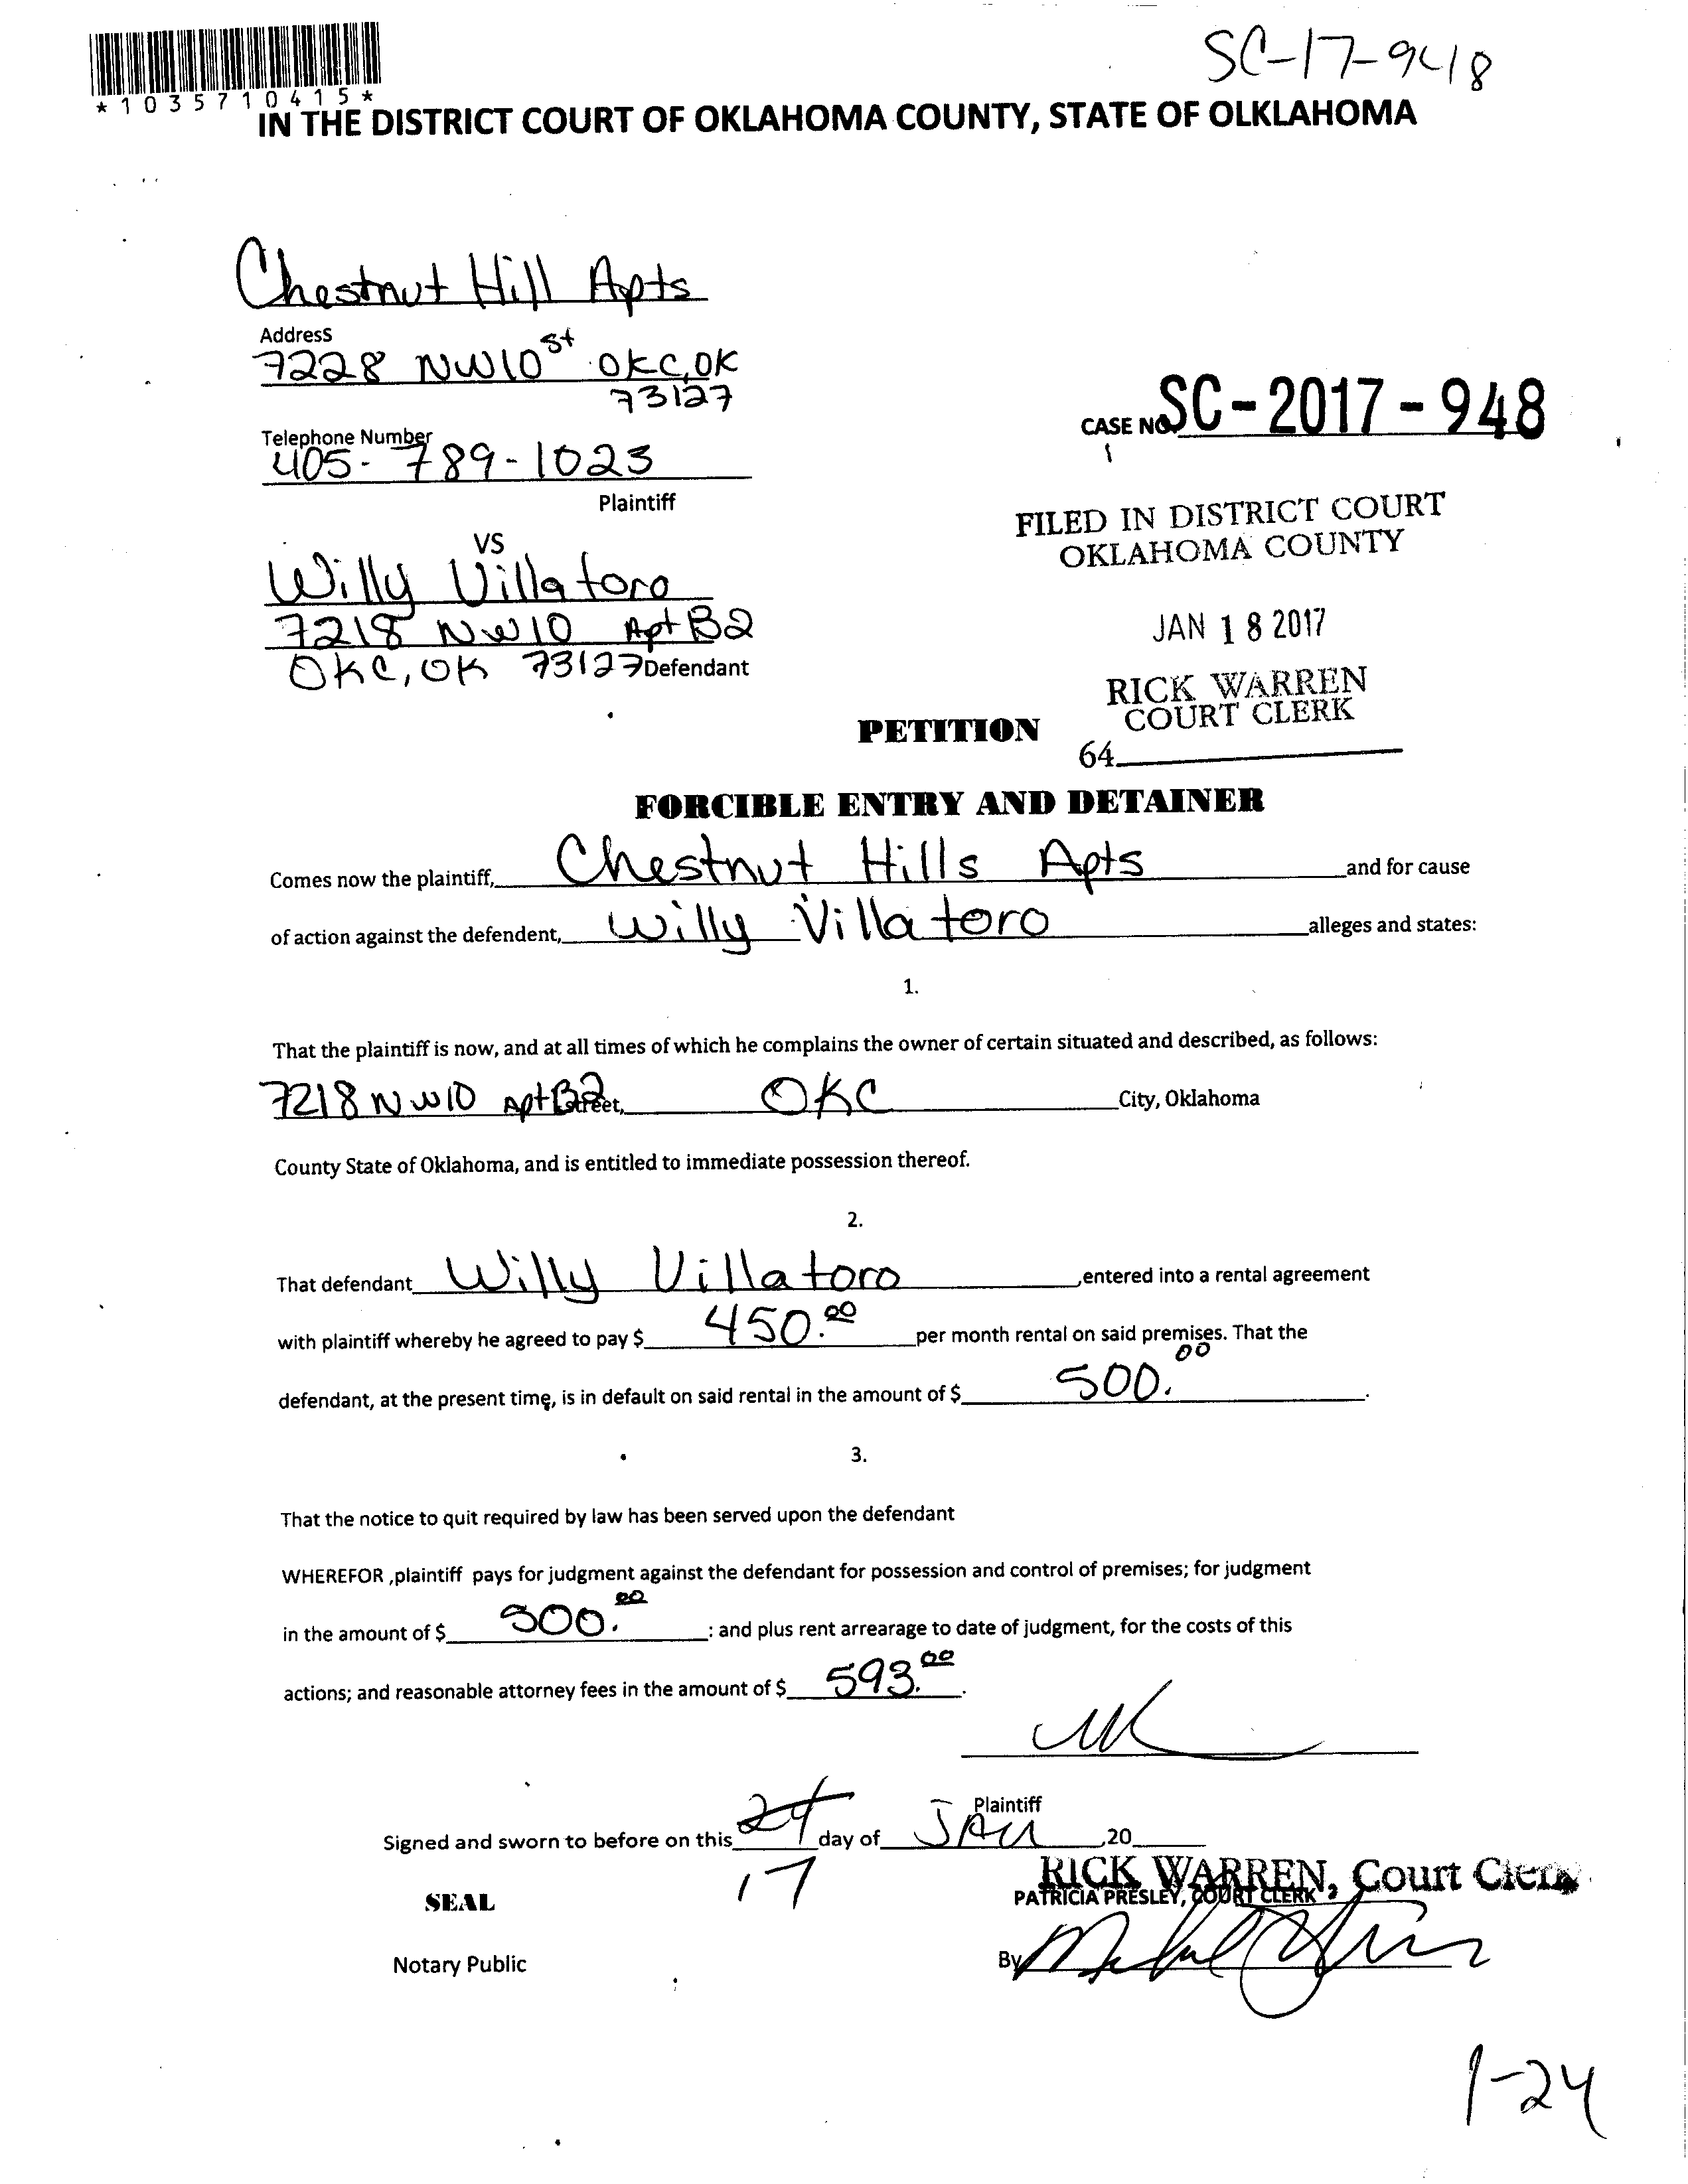 SC-17-948
*1035710415*
IN THE DISTRICT COURT OF OKLAHOMA COUNTY, STATE OF OLKLAHOMA
Chestnut Hill Apts
Address
7228 NW10st OKC, OK
73127
Telephone Number
405-789-1023
Plaintiff
CASE NO. SC-2017-948
FILED IN DISTRICT COURT
OKLAHOMA COUNTY
JAN 18 2017
RICK WARREN
COURT CLERK
64
VS
Willy Villatoro
7218 NW10 Apt B2
OKC, OK 73127 Defendant
PETITION
FORCIBLE ENTRY AND DETAINER
Comes now the plaintiff, Chestnut Hills Apts and for cause
of action against the defendent, Willy Villatoro alleges and states:
1.
That the plaintiff is now, and at all times of which he complains the owner of certain situated and described, as follows:
7218 NW10 Apt B2 Street, OKC City, Oklahoma
County State of Oklahoma, and is entitled to immediate possession thereof.
2.
That defendant Willy Villatoro ,entered into a rental agreement
with plaintiff whereby he agreed to pay $ 450.00 per month rental on said premises. That the
defendant, at the present time, is in default on said rental in the amount of $ 500.00.
3.
That the notice to quit required by law has been served upon the defendant
WHEREFOR ,plaintiff pays for judgment against the defendant for possession and control of premises; for judgment
in the amount of $ 500.00 : and plus rent arrearage to date of judgment, for the costs of this
actions; and reasonable attorney fees in the amount of $ 593.00.
Plaintiff
Signed and sworn to before on this day of JAN ,20
17
RICK WARREN, Court Clerk
PATRICIA PRESLEY, COURT CLERK
SEAL
Notary Public
By
1-24